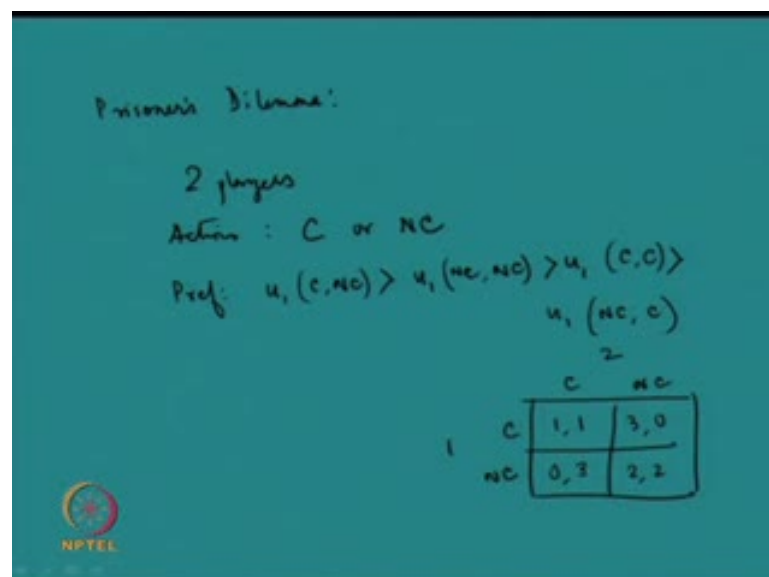 Prisoner's Dilemma:
2 players
Action : C or NC
Pref: u₁ (C,NC) > u₁ (NC, NC) > u₁ (C,C) >
u₁ (NC, C)
2
C NC
1 C 1, 1 3, 0
NC 0, 3 2, 2
NPTEL